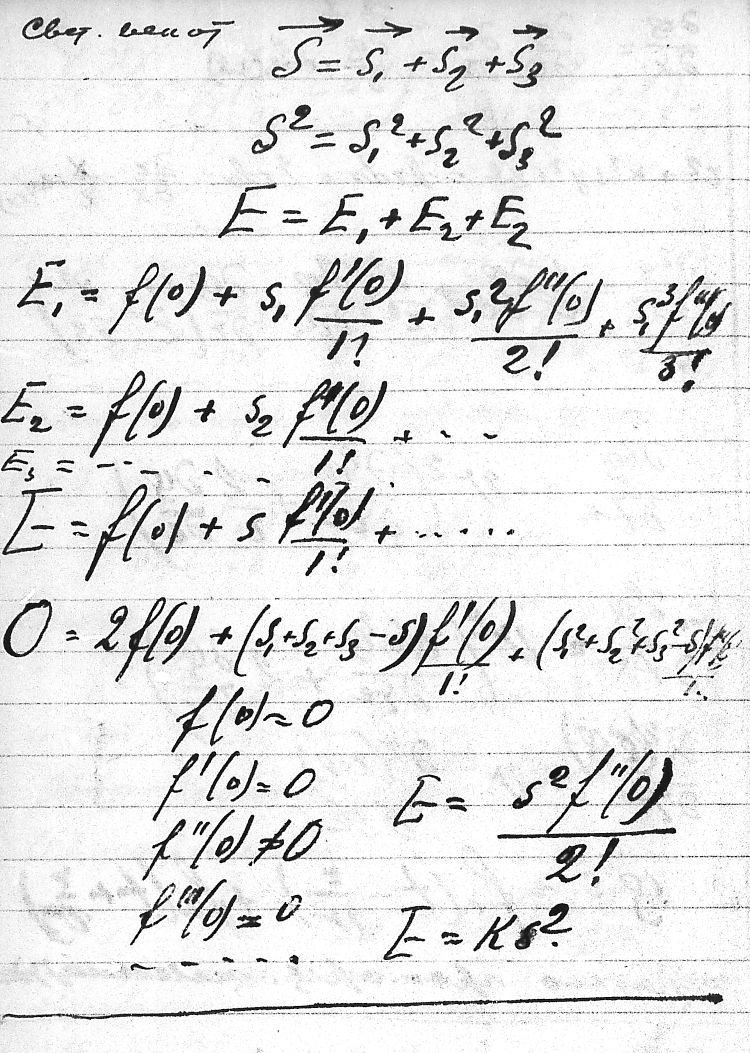 Свет. вект
S⃗ = s⃗₁ + s⃗₂ + s⃗₃
S² = s₁² + s₂² + s₃²
E = E₁ + E₂ + E₂
E₁ = f(0) + s₁ f'(0)/1! + s₁² f''(0)/2! + s₁³ f'''(0)/3!
E₂ = f(0) + s₂ f'(0)/1! + - -
E₃ = - - - - - -
E = f(0) + s f'(0)/1! + ......
0 = 2f(0) + (s₁+s₂+s₃-s) f'(0)/1! + (s₁²+s₂²+s₃²-s²)
f(0) = 0
f'(0) = 0
f''(0) ≠ 0
E = s² f''(0)/2!
f'''(0) = 0
E = Ks².
- - - - - .